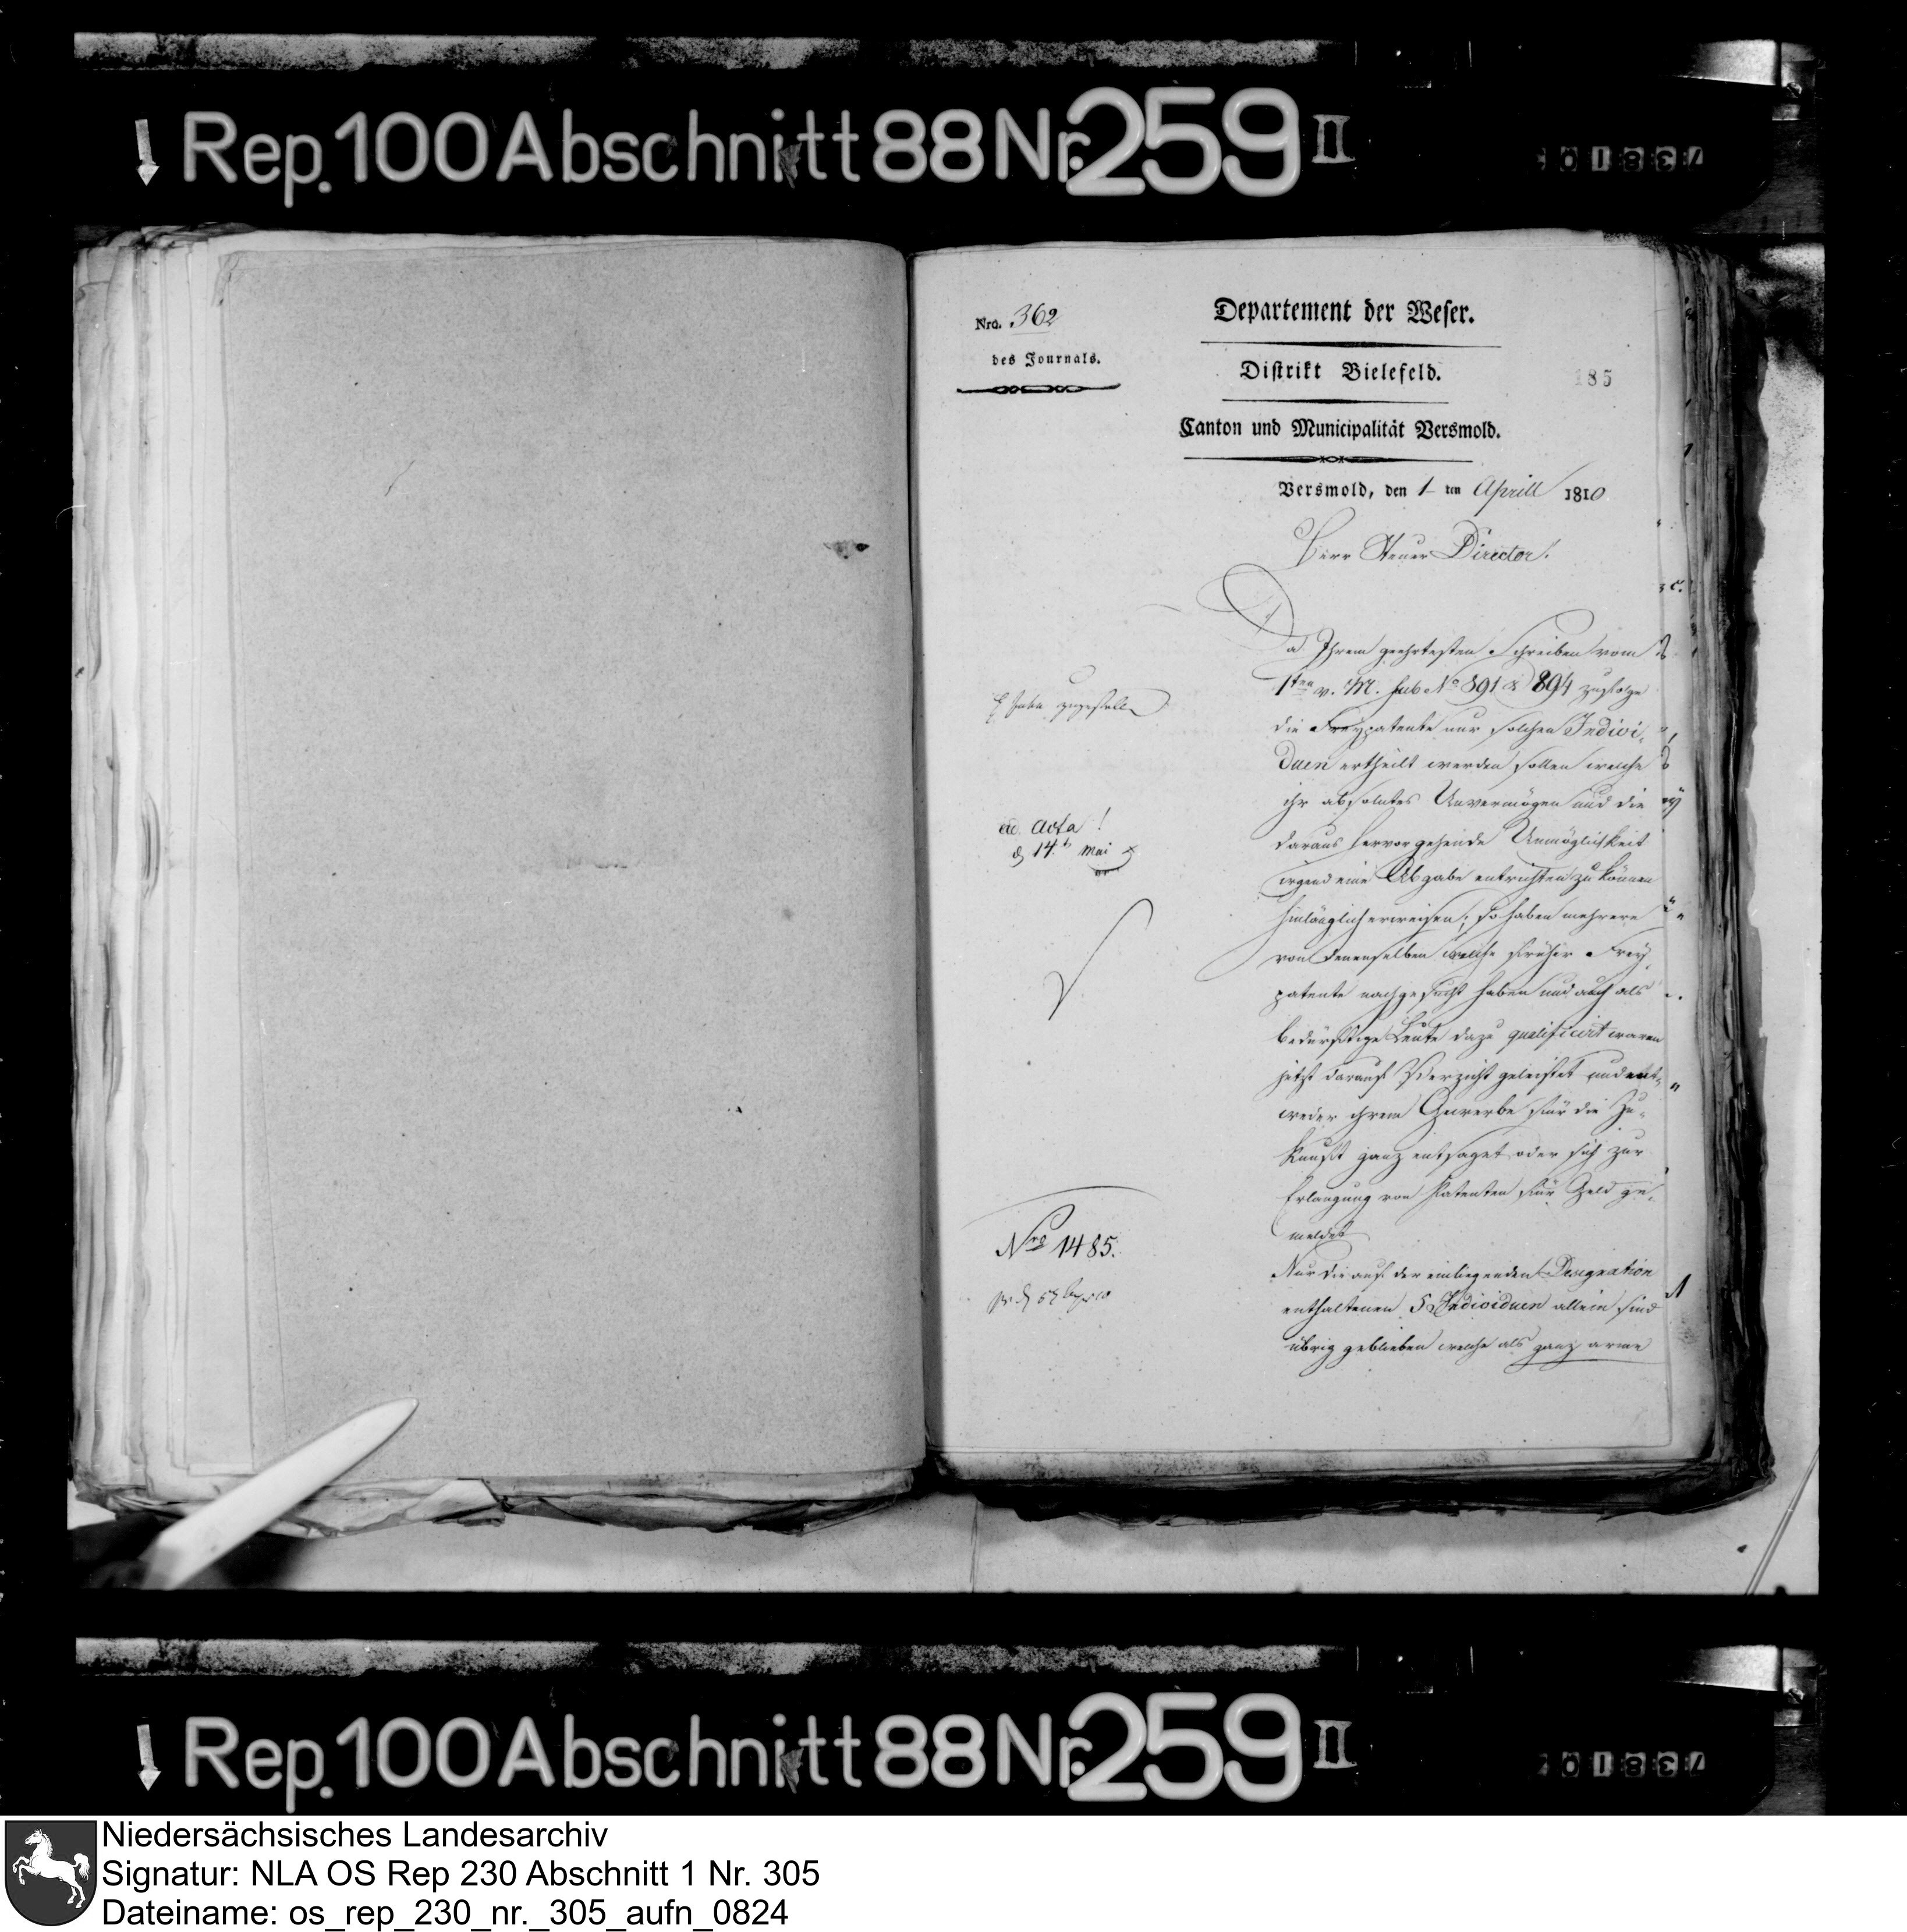 Rep. 100 Abschnitt 88 Nr. 259 II
Nro. 362
des Journals.
Departement der Weser.
Distrikt Bielefeld.
185
Canton und Municipalität Versmold.
Versmold, den 1ten Aprill 1810
Herr Steuer Director!
Da Ihrem geehrtesten Schreiben vom
1ten v. M. sub No 891 & 894 zufolge
die Freypatente nur solchen Indivi-
duen ertheilt werden sollen welche
ihr absolutes Unvermögen und die
daraus hervorgehende Unmöglichkeit
irgend eine Abgabe entrichten zu können
hinlänglich erweisen; so haben mehrere
von denenselben welche früher Frey
patente nachgesucht haben und auch als
bedürftige Leute dazu qualificirt waren
jetzt darauf Verzicht geleistet und ent-
weder ihrem Gewerbe für die Zu-
kunft ganz entsaget oder sich zur
Erlangung von Patenten für Geld ge-
meldet
Nur die auf der einliegenden Designation
enthaltenen 5 Individuen allein sind
übrig geblieben welche als ganz arme
ad Acta!
d 14t Mai
Nro 1485.
Rep. 100 Abschnitt 88 Nr. 259 II
Niedersächsisches Landesarchiv
Signatur: NLA OS Rep 230 Abschnitt 1 Nr. 305
Dateiname: os_rep_230_nr._305_aufn_0824